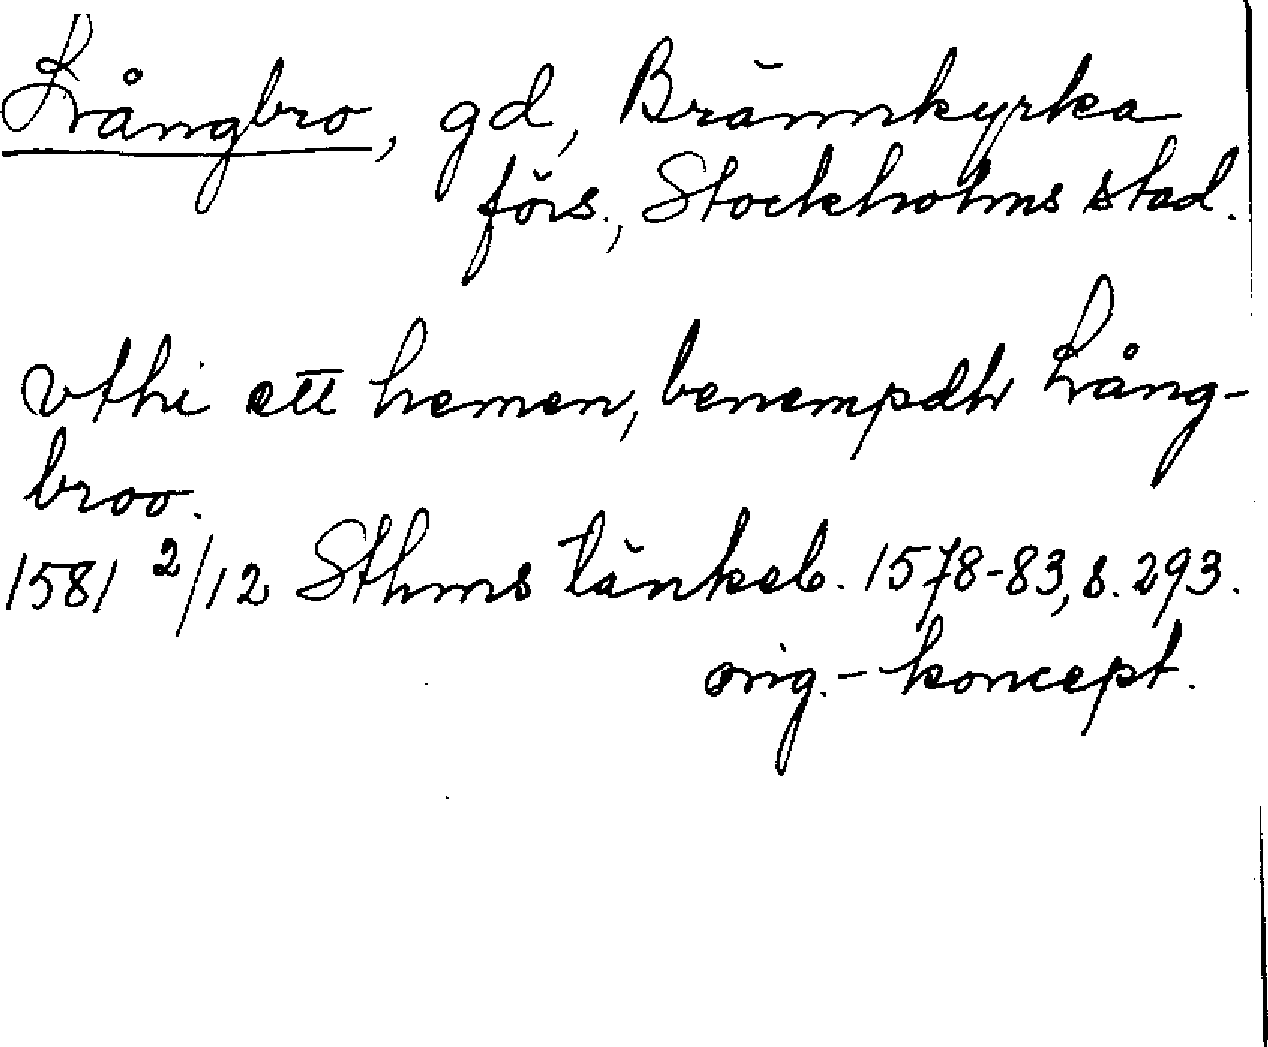 Långbro, gd, Brännkyrka
förs., Stockholms stad.
vthi ett hemen, benempdh Lång-
broo.
1581 2/12 Sthms tänkeb. 1578-83, s. 293.
orig.-koncept.